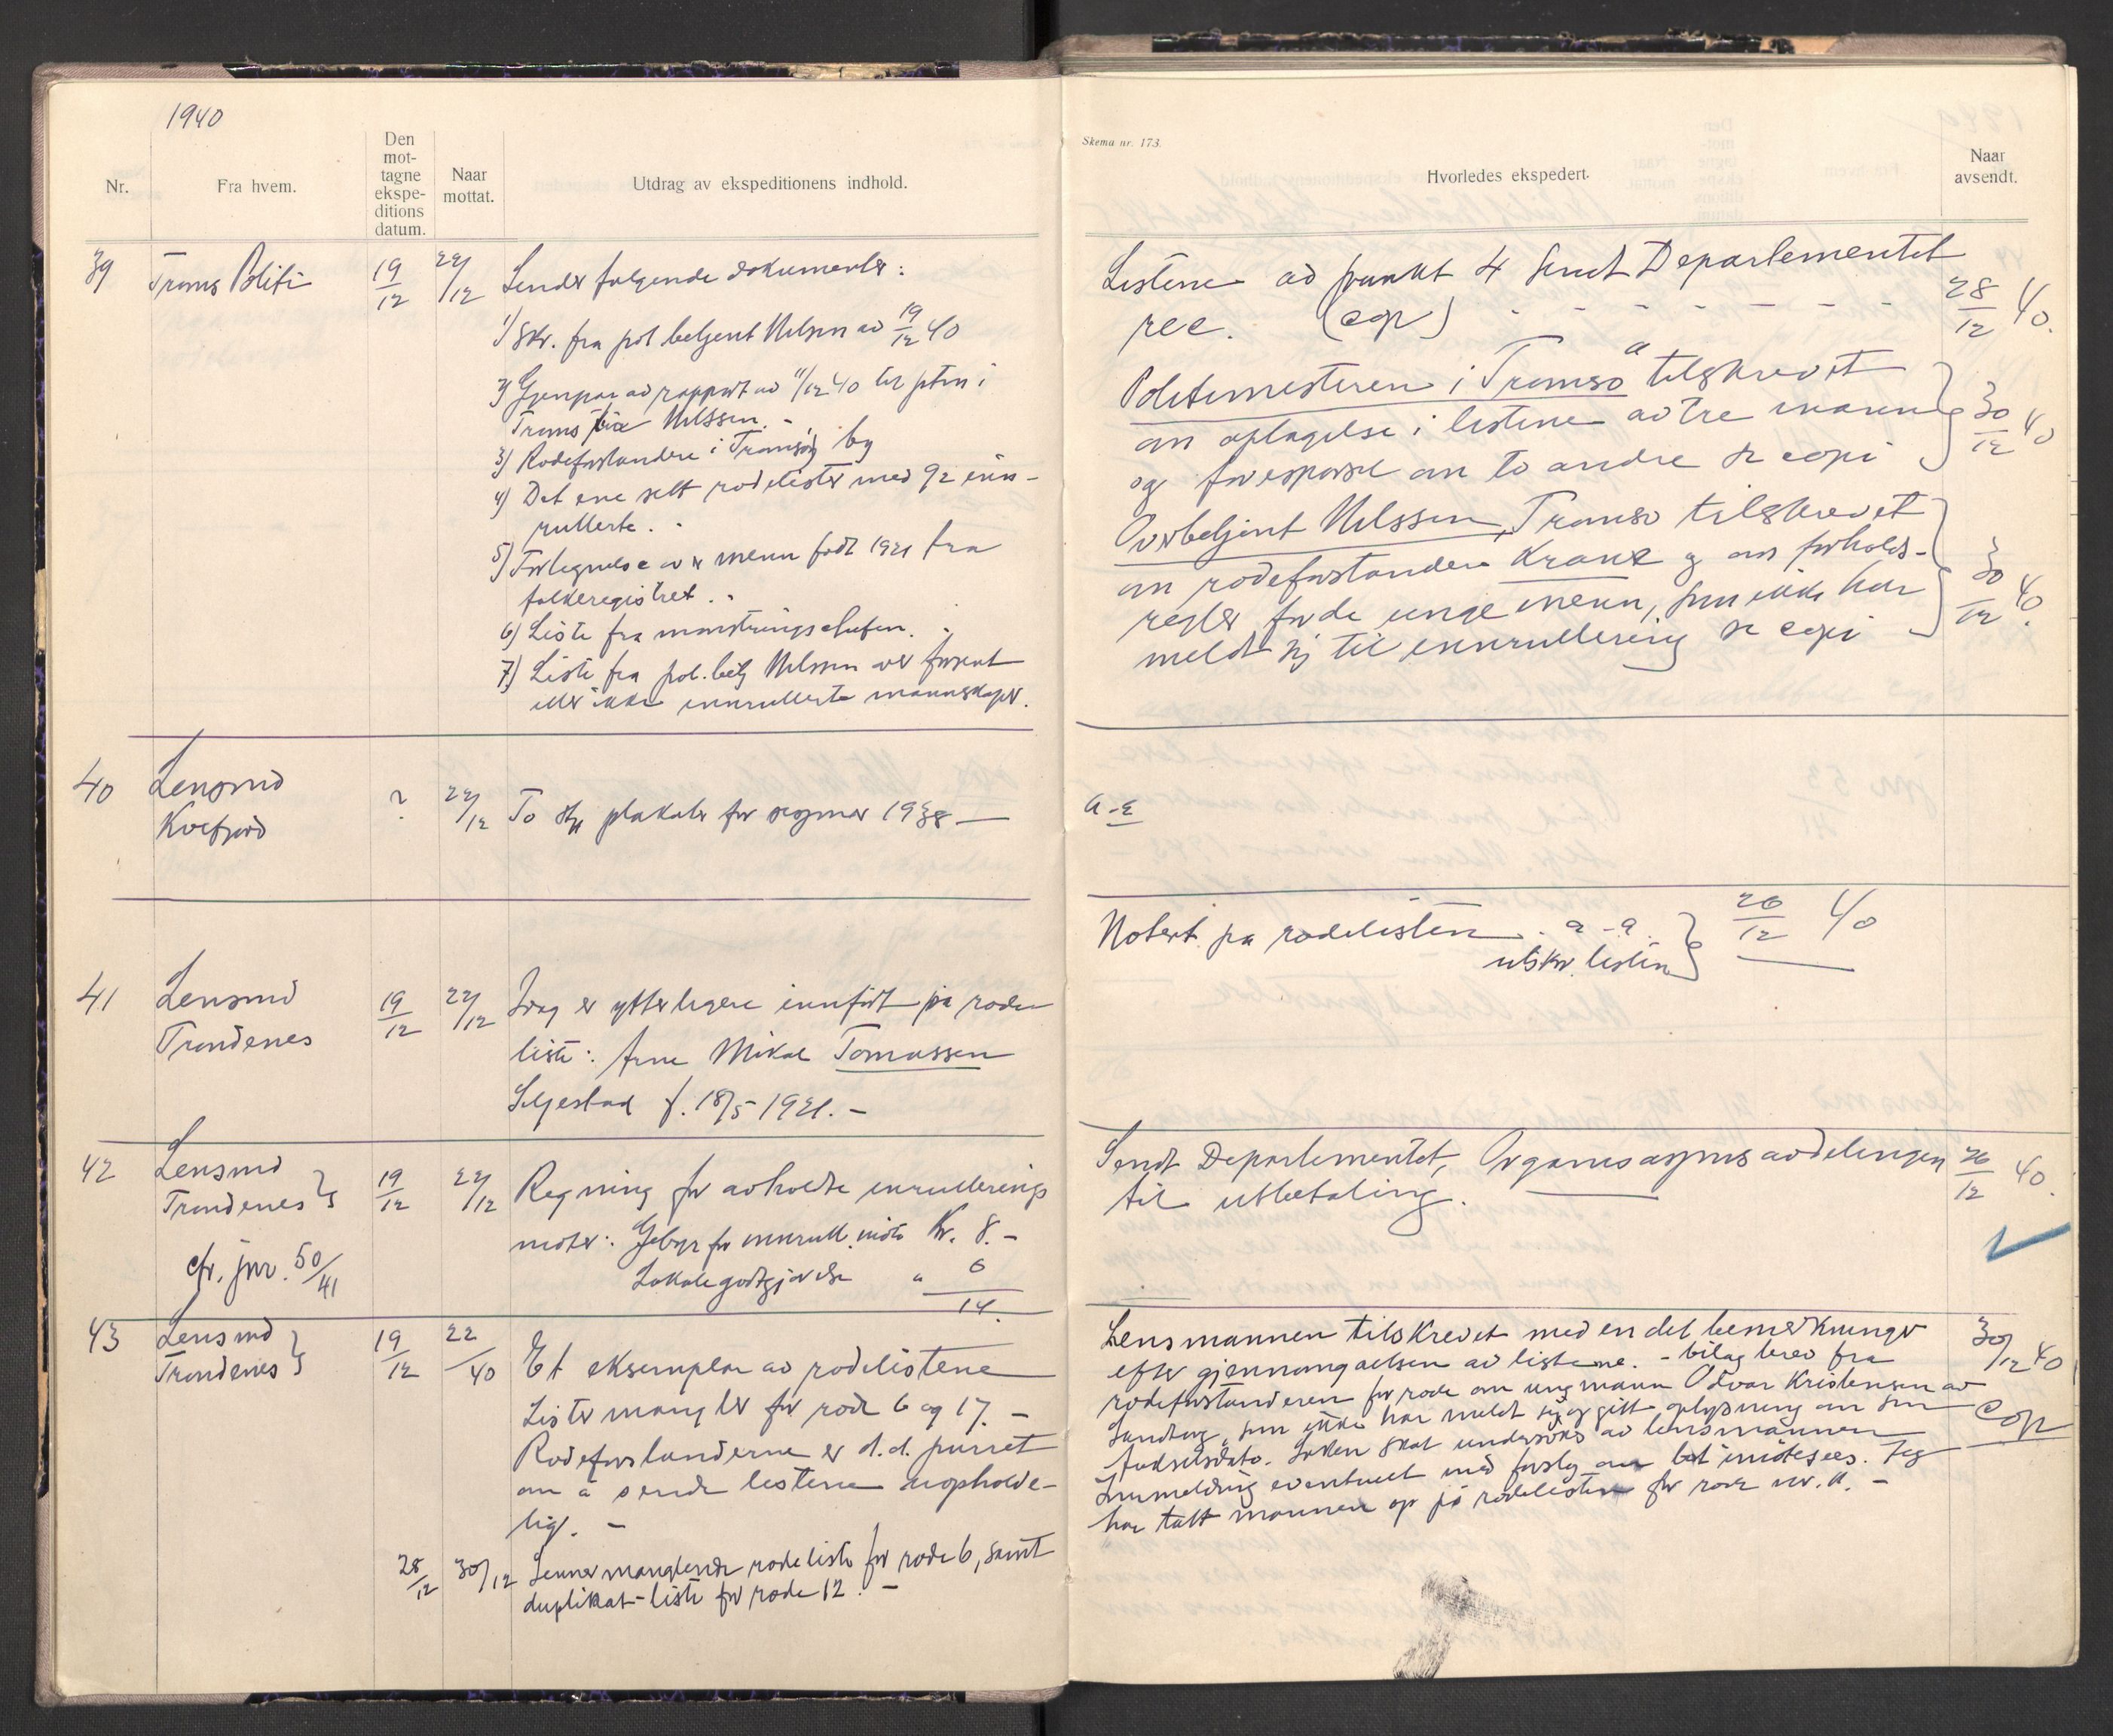 1940
Nr.
Fra hvem.
Den
mot-
tagne
ekspe-
ditions
datum.
Naar
mottat.
Utdrag av ekspeditionens indhold.
39 Troms Politi 19/12 22/12 Sender følgende dokumenter:
1) Skr. fra pol betjent Nilssen av 19/12 40
2) Gjenpar av rapport av 11/12 40 til pstm i
Troms fra Nilssen. -
3) Rodeforstandere i Tromsø by
4) Det ene sett rodelister med 92 inn-
rullerte. -
5) Fortegnelse over menn født 1921 fra
folkeregistret. -
6) Liste fra mønstringschefen. -
7) Liste fra pol. betj Nilssen over
eller ikke innrullerte mannskaper.
40 Lensmd
Kvefjord ? 22/12 To stk plakater for sesjoner 1938 —
41 Lensmd
Trondenes 19/12 22/12 Idag er ytterligere innført på rode
liste: Arne Mikal Tomassen
Seljestad f. 18/5 1921. -
42 Lensmd
Trondenes 19/12 22/12 Regning for avholdte innrullerings
møter: Gebyr for innrull. møte Kr. 8. -
Lokalegodtgjørelse " 6
14.
cfr. jnr. 50/41
43 Lensmd
Trondenes 19/12 22/40 Et eksemplar av rodelistene
Lister mangler for rode 6 og 17. -
Rodeforstanderne er d.d. purret
om å sende listene uopholde-
lig. -
28/12 30/12 Sender manglende rodeliste for rode 6, samt
duplikat-liste for rode 12. -
Skema nr. 173.
Hvorledes ekspedert.
Naar
avsendt.
Listene ad punkt 4 sendt Departementet
rec. (cop) - - - - - - - 28/12 40.
Politimesteren i Tromsø tilskrevet
om optagelse i listene av tre mann
og forespørsel om to andre se copi 30/12 40
Overbetjent Nilssen, Tromsø tilskrevet
om rodeforstander Krane og om forholds-
regler for de unge menn, som ikke har
meldt sig til innrullering se copi 30/12 40.
a-a
Notert på rodelisten. a-a.
utskr. listen 26/12 40
Sendt Departementet, Organisasjonsavdelingen
til utbetaling. 26/12 40.
Lensmannen tilskrevet med en del bemerkninger
efter gjennemgåelsen av listene. - bilag brev fra
rodeforstanderen for rode om ung mann Odvar Kristensen av
Sandtorg, som ikke har meldt sig og gitt oplysning om sin
fødselsdato. Saken skal undersøkes av lensmannen
Innmelding eventuelt med forslag om bot imøtesees. Jeg
har tatt mannen op på rodelisten for rode nr. 11. -
30/12 40
cop